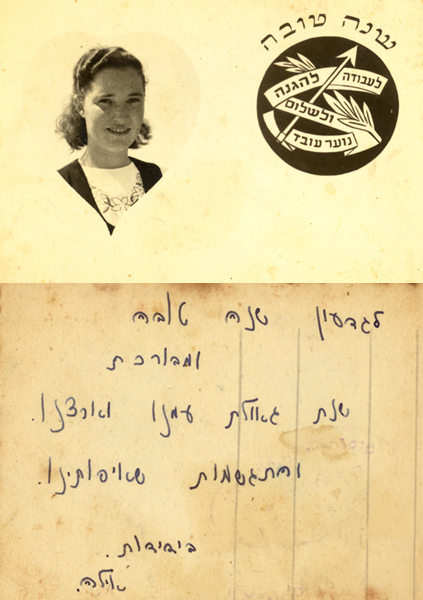 שנה טובה
לעבודה
להגנה
ולשלום
נוער עובד
לגדעון שנה טובה
ומבורכת
שנת גאולת עמנו וארצנו.
והתגשמות שאיפותינו.
בידידות.
אילה.